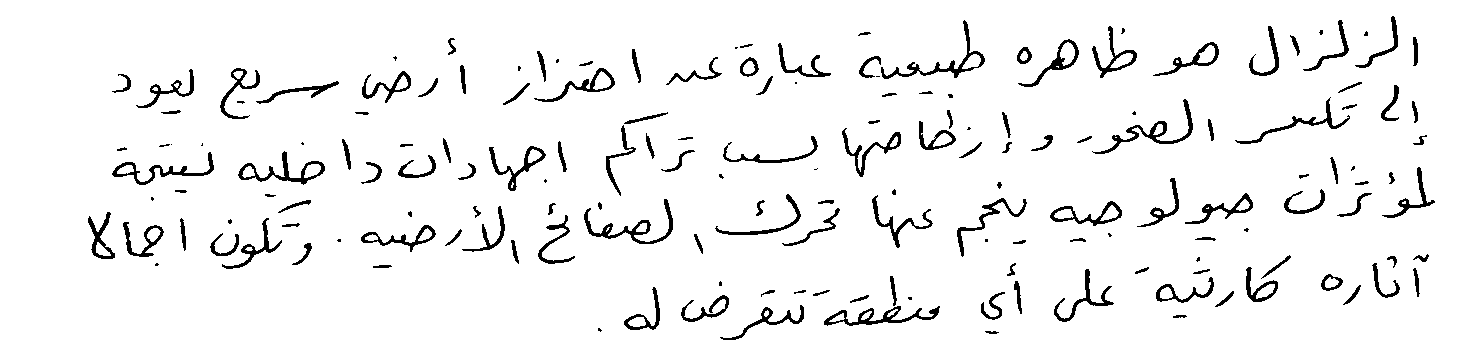 الزلزال هو ظاهره طبيعية عبارة عن اهتزاز أرضي سريع يعود
إلى تكسر الصخور وإزاحتها بسبب تراكم اجهادات داخليه نتيجة
لمؤثرات جيولوجيه ينجم عنها تحرك الصفائح الأرضيه. وتكون اجمالا
آثاره كارثية على أي منطقة تتعرض له.